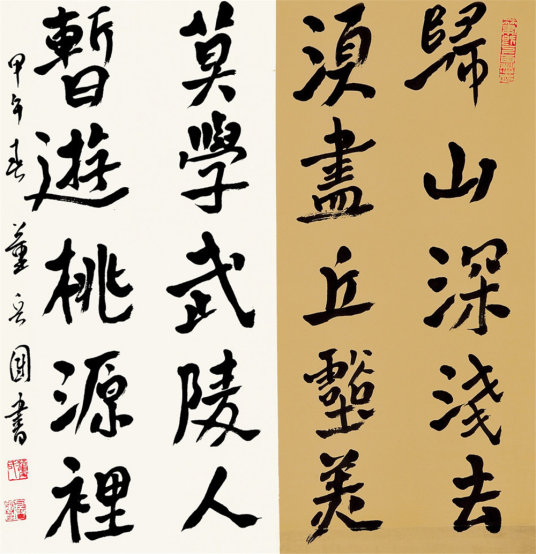 歸山深淺去
須盡丘壑美
莫學武陵人
暫遊桃源裡
甲午春董岳國書